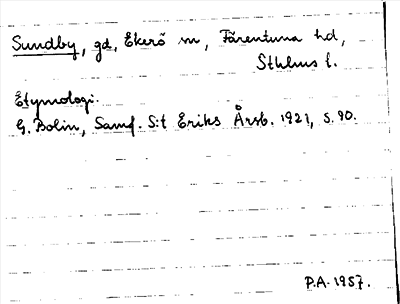 Sundby, gd, Ekerö sn, Färentuna hd,
Sthlms l.
Etymologi:
G. Bolin, Samf. S:t Eriks Årsb. 1921, s. 90.
P.A. 1957.